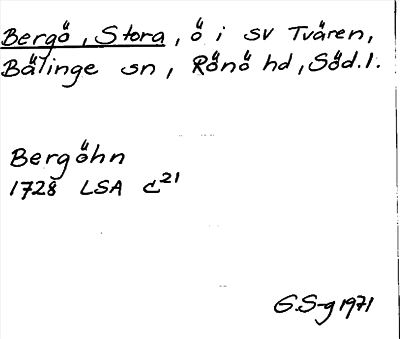 Bergö, Stora, ö i sv Tvären,
Bälinge sn, Rönö hd, Söd.l.
Bergöhn
1728 LSA C21
G.S-g 1971